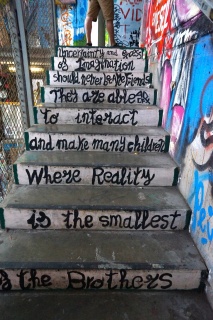 Uncertainty and
of Imagination
should never be friends
They are able
to interact
and make many children
Where Reality
is the smallest
the Brothers